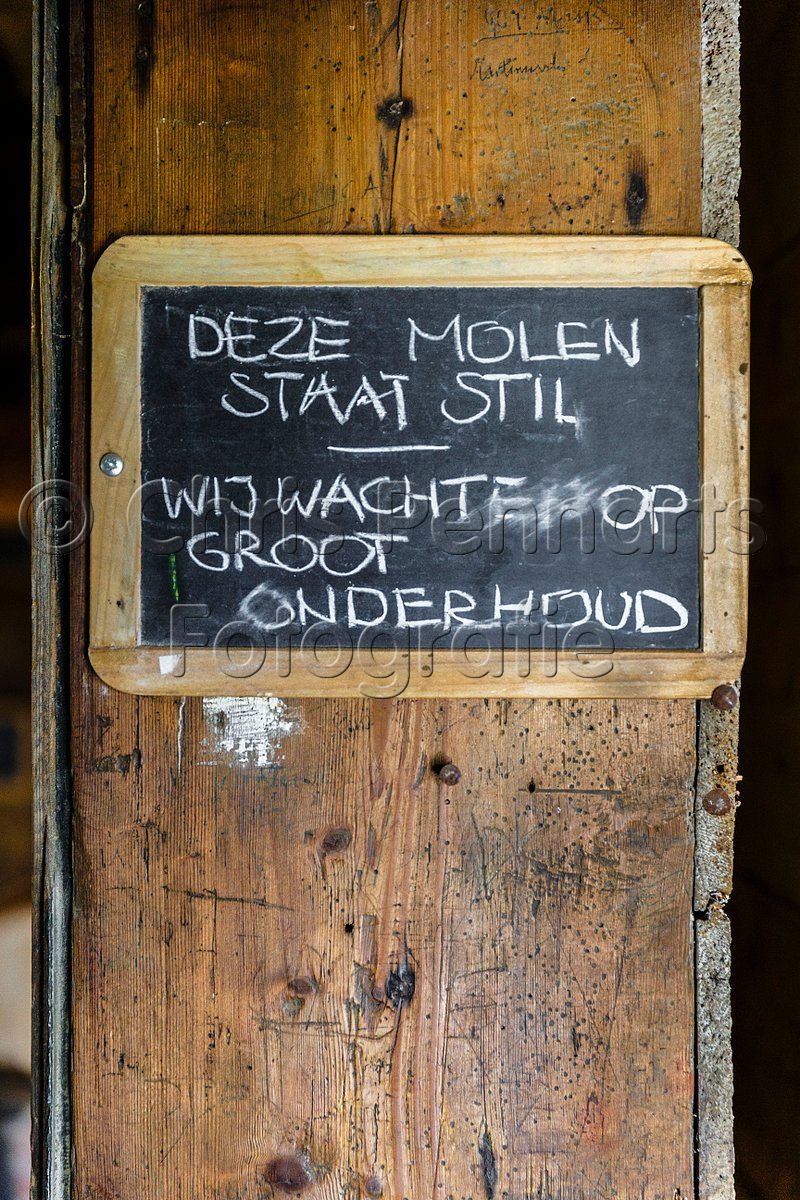 DEZE MOLEN
STAAT STIL
WIJ WACHTEN OP
GROOT
ONDERHOUD
© Chris Pennarts
Fotografie